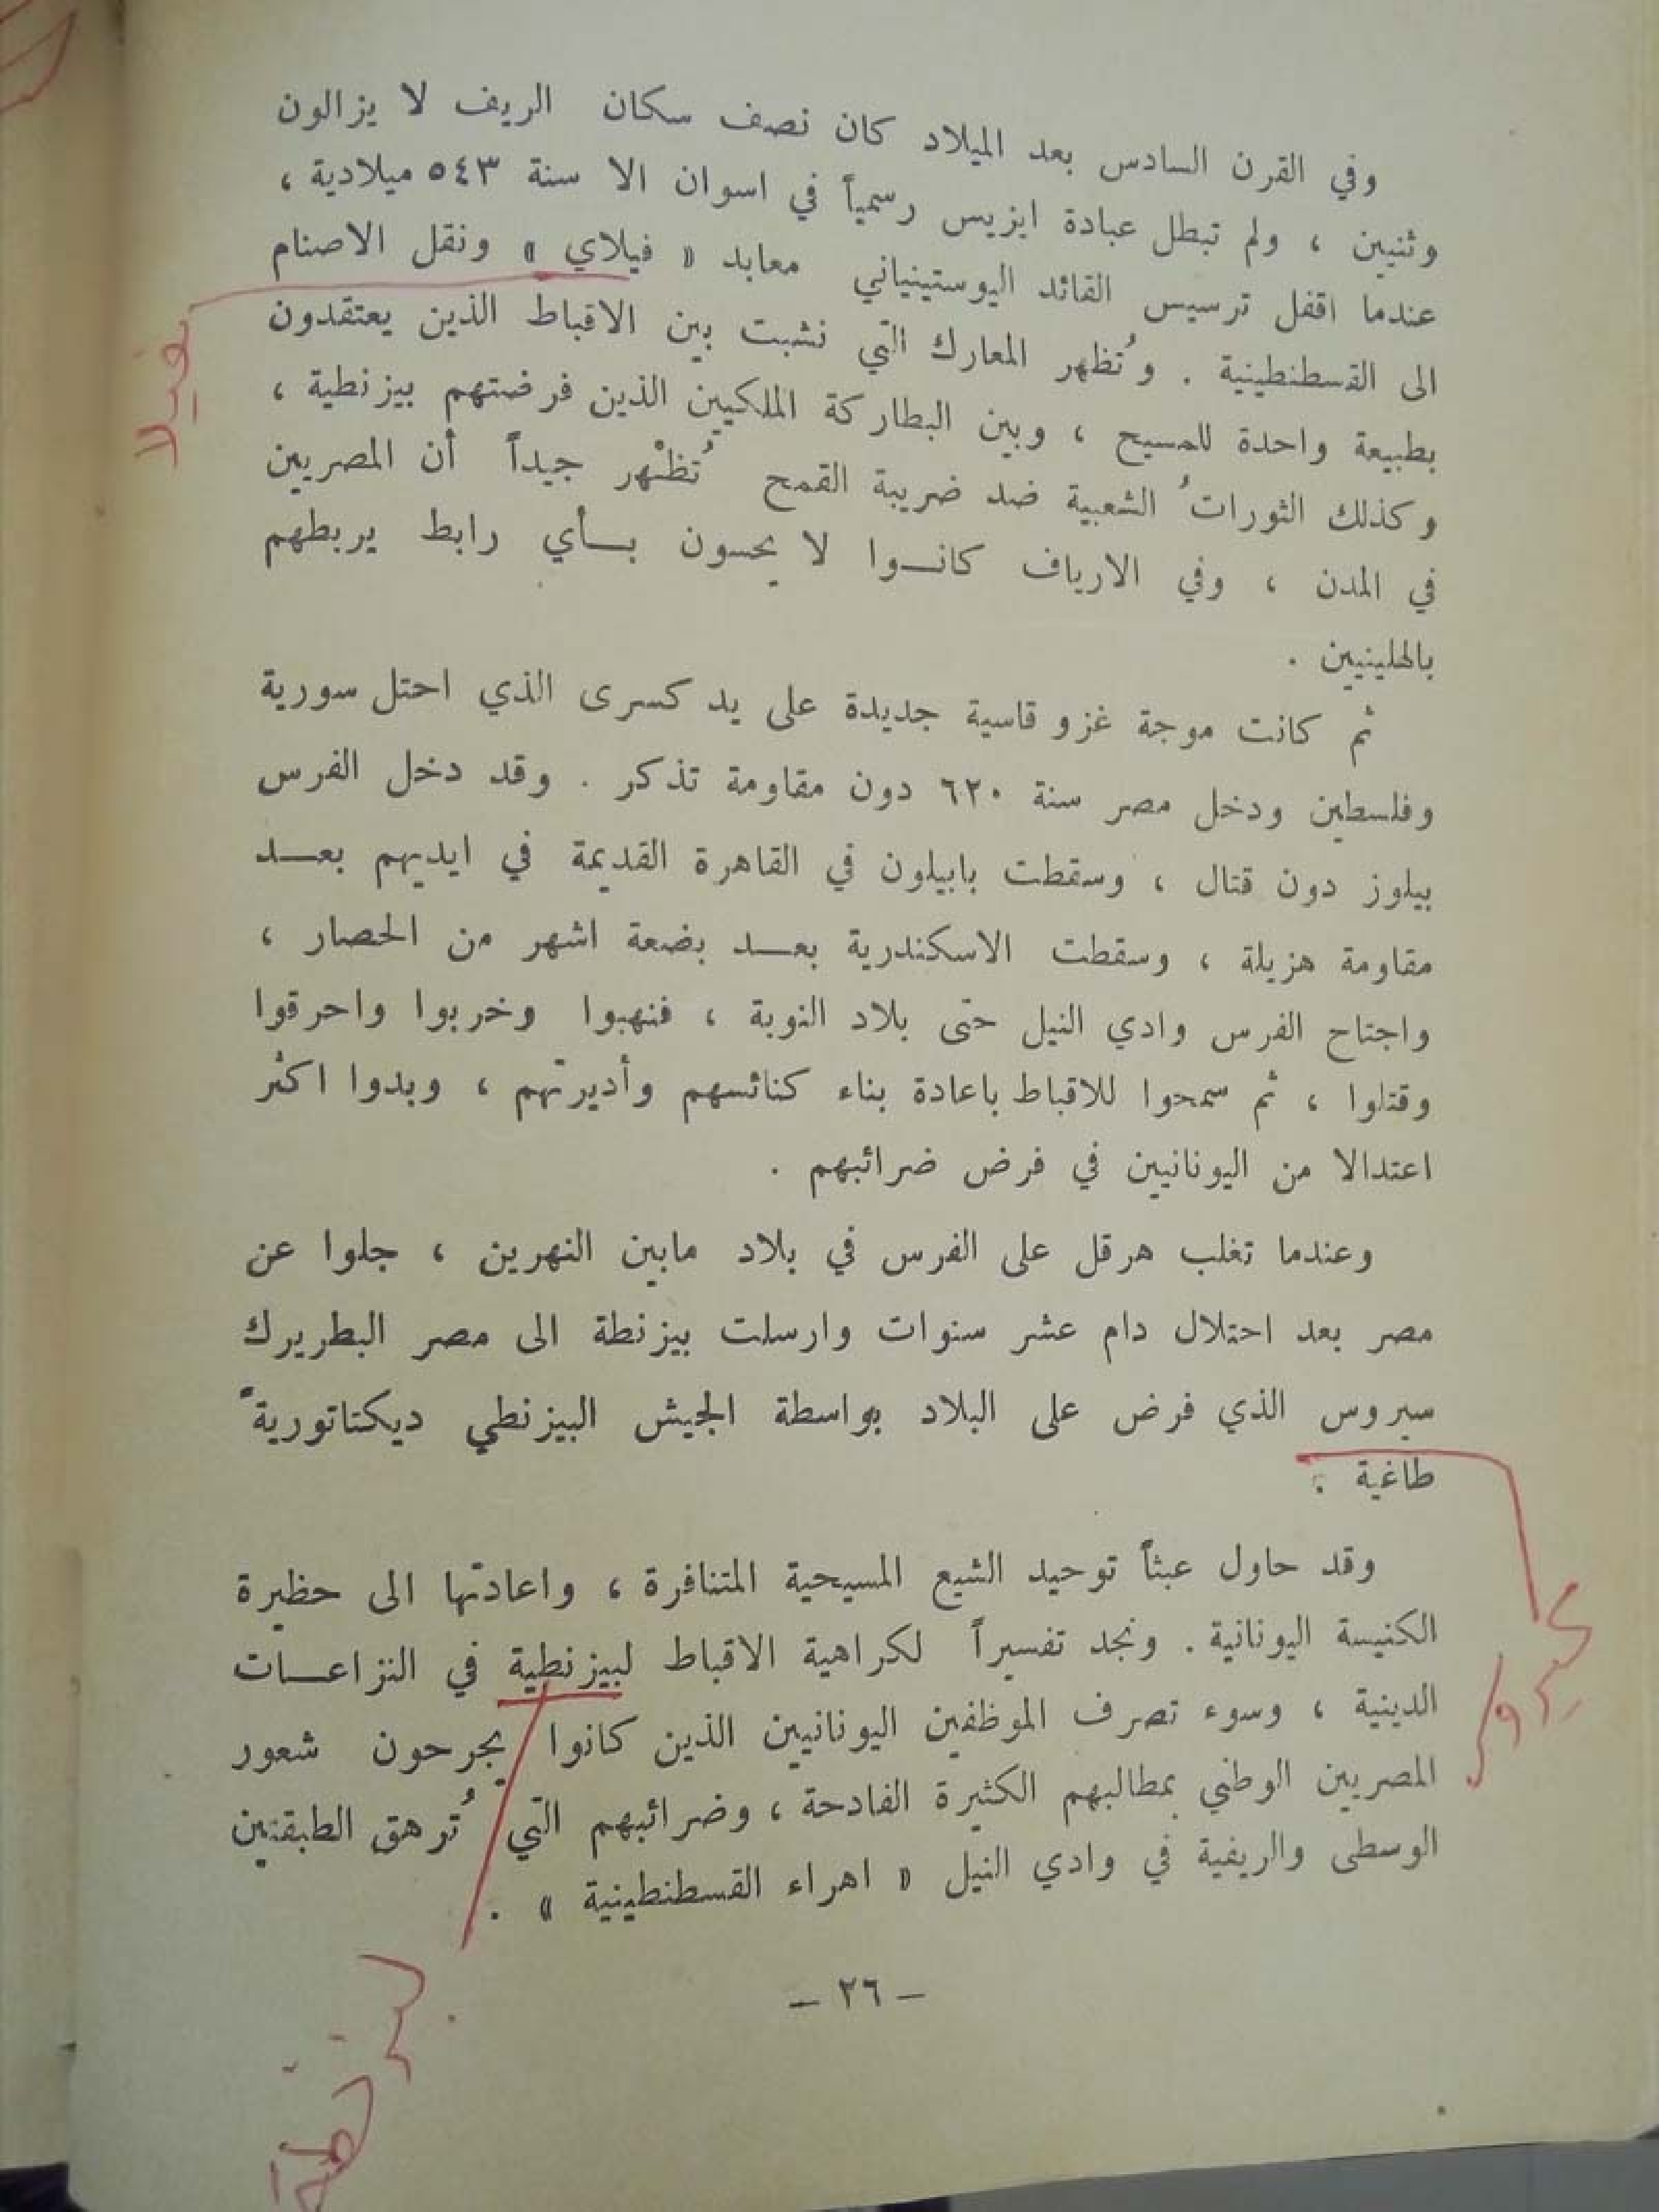 وفي القرن السادس بعد الميلاد كان نصف سكان الريف لا يزالون
وثنيين ، ولم تبطل عبادة ايزيس رسمياً في اسوان الا سنة ٥٤٣ ميلادية ،
عندما اقفل ترسيس القائد اليوستينياني معابد « فيلاي » ونقل الاصنام
الى القسطنطينية . وتُظهر المعارك التي نشبت بين الاقباط الذين يعتقدون
بطبيعة واحدة للمسيح ، وبين البطاركة الملكيين الذين فرضتهم بيزنطية ،
وكذلك الثوراتُ الشعبية ضد ضريبة القمح تُظْهر جيداً أن المصريين
في المدن ، وفي الارياف كانـوا لا يحسون بـأي رابط يربطهم
بالهلينيين .
ثم كانت موجة غزو قاسية جديدة على يد كسرى الذي احتل سورية
وفلسطين ودخل مصر سنة ٦٢٠ دون مقاومة تذكر . وقد دخل الفرس
بيلوز دون قتال ، وسقطت بابيلون في القاهرة القديمة في ايديهم بعـد
مقاومة هزيلة ، وسقطت الاسكندرية بعـد بضعة اشهر من الحصار ،
واجتاح الفرس وادي النيل حتى بلاد النوبة ، فنهبوا وخربوا واحرقوا
وقتلوا ، ثم سمحوا للاقباط باعادة بناء كنائسهم وأديرتهم ، وبدوا اكثر
اعتدالا من اليونانيين في فرض ضرائبهم .
وعندما تغلب هرقل على الفرس في بلاد مابين النهرين ، جلوا عن
مصر بعد احتلال دام عشر سنوات وارسلت بيزنطة الى مصر البطريرك
سيروس الذي فرض على البلاد بواسطة الجيش البيزنطي ديكتاتوريةً
طاغية .
وقد حاول عبثاً توحيد الشيع المسيحية المتنافرة ، واعادتها الى حظيرة
الكنيسة اليونانية . ونجد تفسيراً لكراهية الاقباط لبيزنطية في النزاعـات
الدينية ، وسوء تصرف الموظفين اليونانيين الذين كانوا يجرحون شعور
المصريين الوطني بمطالبهم الكثيرة الفادحة ، وضرائبهم التي تُرهق الطبقتين
الوسطى والريفية في وادي النيل « اهراء القسطنطينية » .
– ٢٦ –
فيلا
لبيزنطة